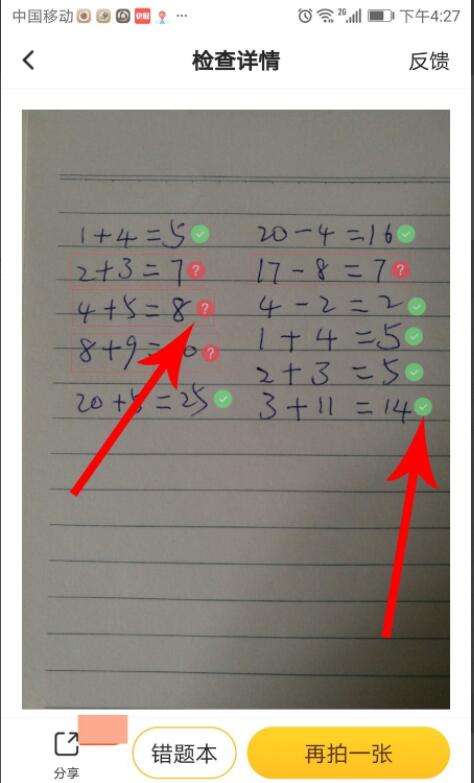 中国移动 2G 下午4:27
检查详情 反馈
1+4=5 20-4=16
2+3=7 ? 17-8=7 ?
4+5=8 ? 4-2=2
8+9= 0 ? 1+4=5
2+3=5
20+5=25 3+11=14
分享 错题本 再拍一张